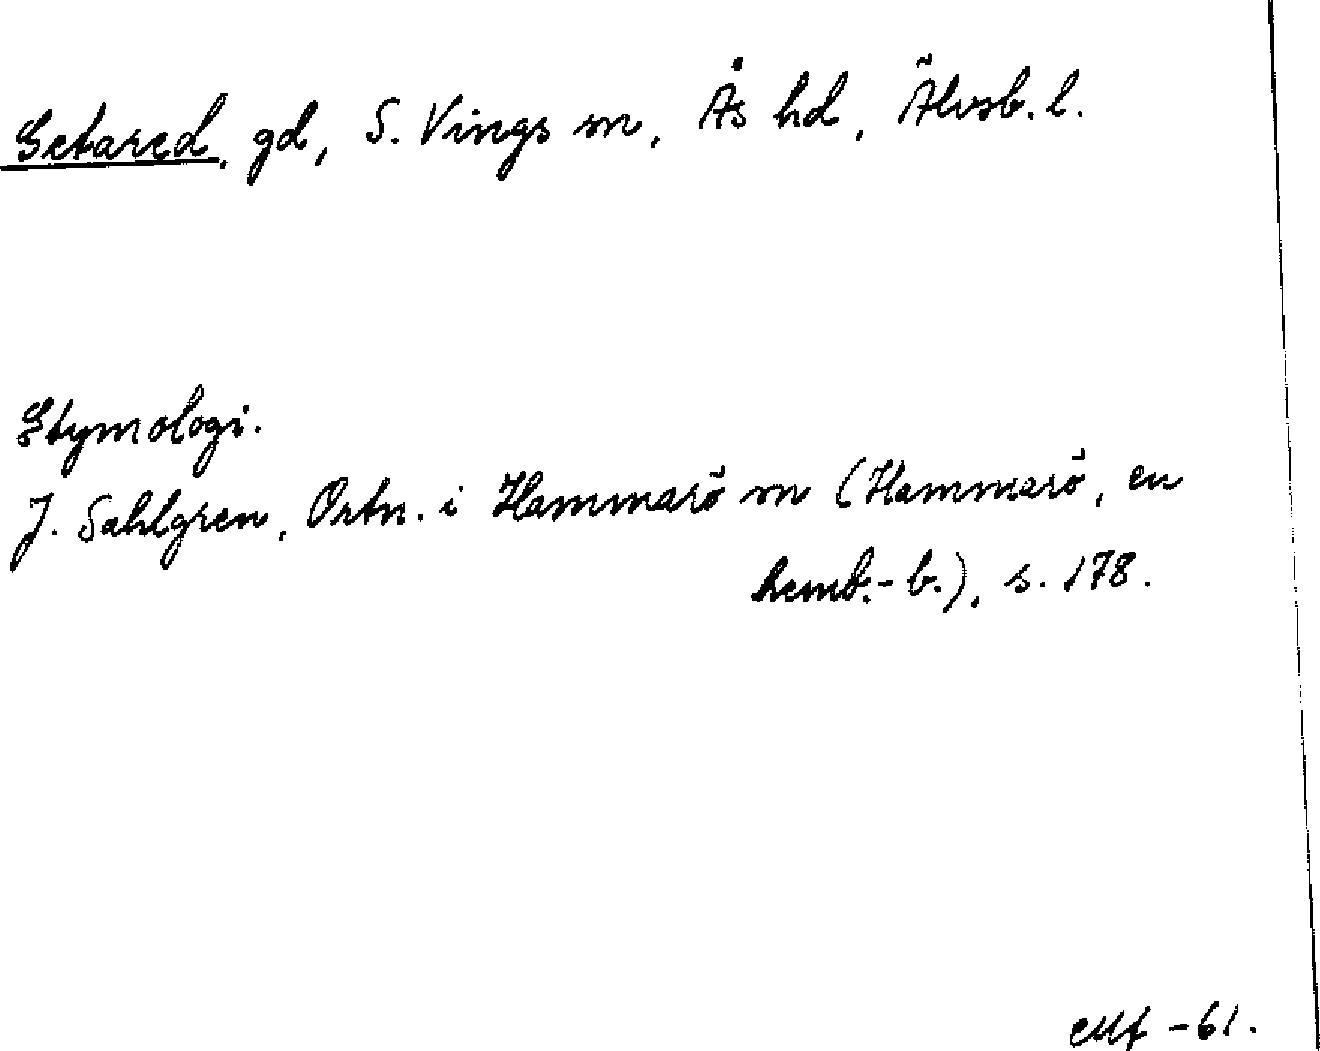 Getared, gd, S. Vings sn, Ås hd, Älvsb. l.
Etymologi.
J. Sahlgren, Ortn. i Hammarö sn (Hammarö, en
hemb.-b.), s. 178.
-61.